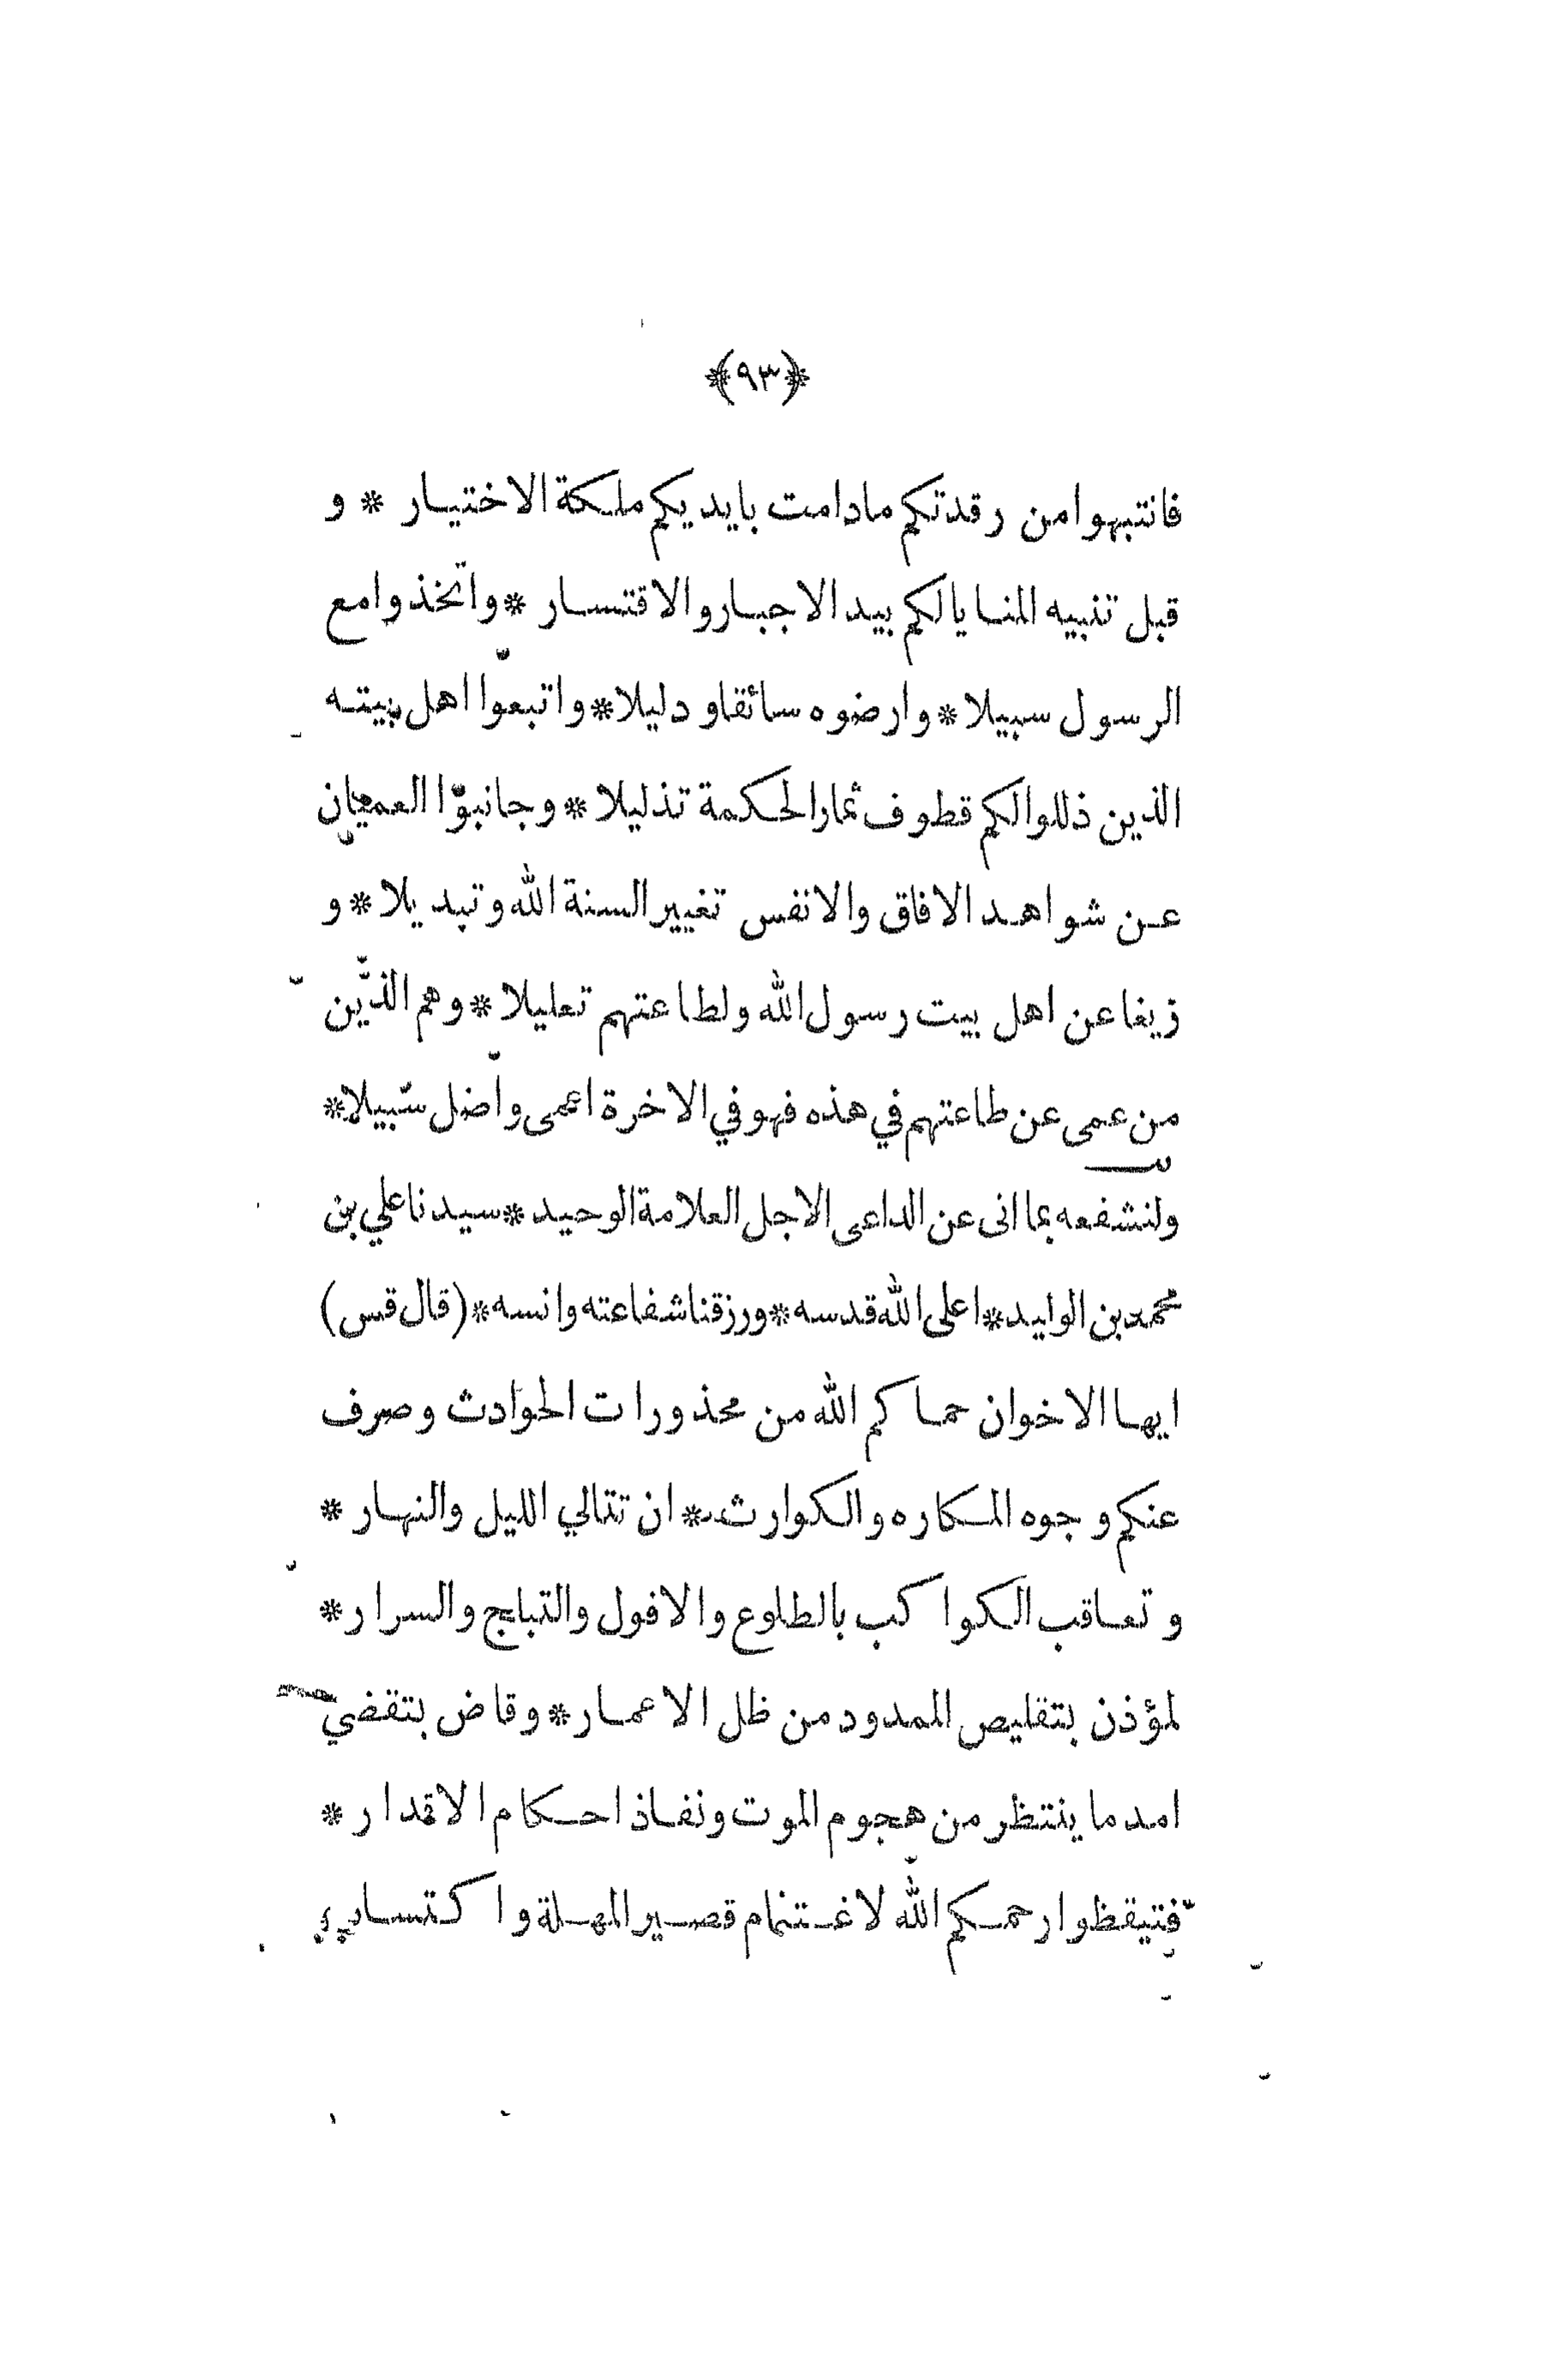 ﴿٩٣﴾
فانتبهوا من رقدتكم مادامت بايديكم ملكة الاختيار * و
قبل تنبيه المنايا لكم بيد الاجبار والاقتسار * واتخذوا مع
الرسول سبيلا * وارضوه سائقا ودليلا * واتبعوا اهل بيته
الذين ذللوا لكم قطوف ثمار الحكمة تذليلا * وجانبوا العميان
عن شواهد الافاق والانفس تغيير السنة الله وتبديلا * و
زيغا عن اهل بيت رسول الله ولطاعتهم تعليلا * وهم الذين
من عمى عن طاعتهم في هذه فهو في الاخرة اعمى واضل سبيلا *
ولنشفعه بما اتى عن الداعى الاجل العلامة الوحيد * سيدنا علي بن
محمد بن الوليد * اعلى الله قدسه * ورزقنا شفاعته وانسه * (قال قس)
ايها الاخوان حماكم الله من محذورات الحوادث وصرف
عنكم وجوه المكاره والكوارث * ان تتالي الليل والنهار *
وتعاقب الكواكب بالطلوع والافول والتبلج والسرار *
لمؤذن بتقليص الممدود من ظل الاعمار * وقاض بتقضي
امد ما ينتظر من هجوم الموت ونفاذ احكام الاقدار *
فتيقظوا رحمكم الله لاغتنام قصير المهلة واكتساب